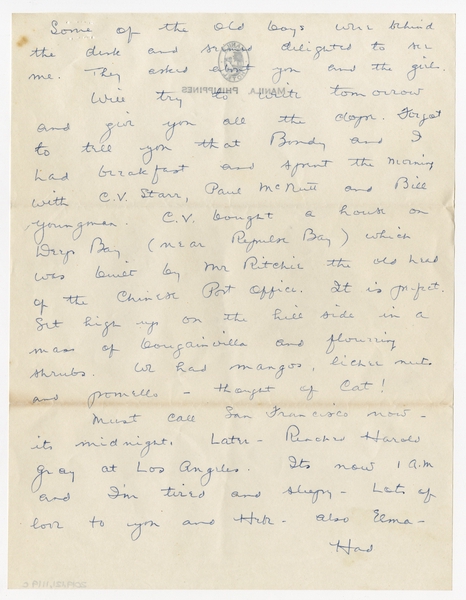 Some of the old boys were behind
the desk and seemed delighted to see
me. They asked about you and the girls.
MANILA, PHILIPPINES
Will try to write tomorrow
and give you all the dope. Forgot
to tell you that Bondy and I
had breakfast and spent the morning
with C.V. Starr, Paul McNutt and Bill
Youngman. C.V. bought a house on
Deep Bay (near Repulse Bay) which
was built by Mr Ritchie the old head
of the Chinese Post Office. It is perfect.
Set high up on the hill side in a
mass of bougainvilla and flouring
shrubs. We had mangos, lichee nuts
and pomello - thought of Cat!
Must call San Francisco now -
its midnight. Later - Reached Harold
Gray at Los Angeles. Its now 1 A.M
and I'm tired and sleepy - Lots of
love to you and - also Elma -
Had